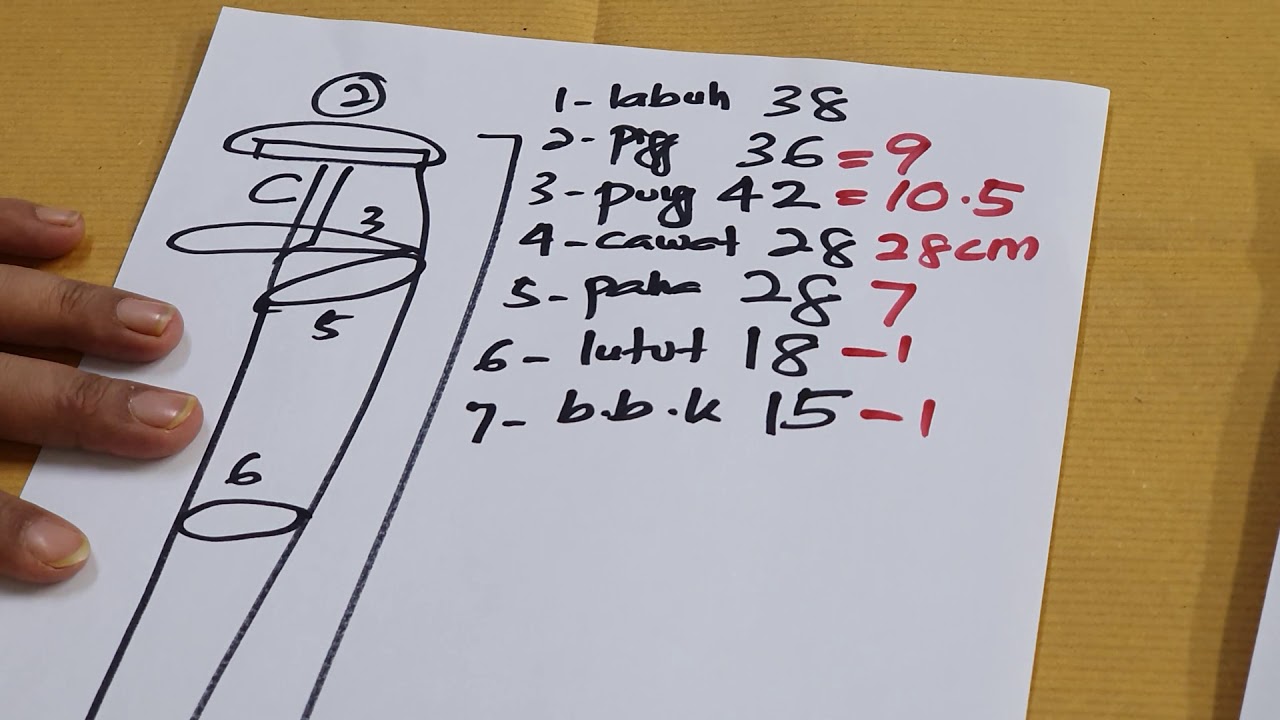 2
C
3
5
6
1 - labuh 38
2 - pigg 36 = 9
3 - pung 42 = 10.5
4 - cawat 28 28cm
5 - paha 28 7
6 - lutut 18 - 1
7 - b.b.k 15 - 1